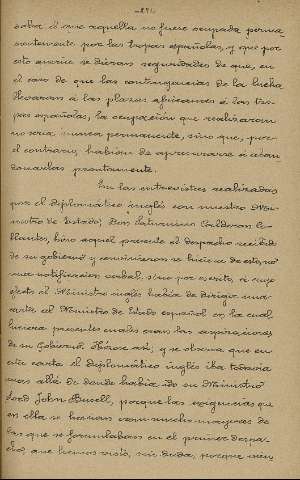 sobre el que aquella no fuese ocupada perma-
nentemente por las tropas españolas, y que por
esto mismo se dieran seguridades de que, en
el caso de que las contingencias de la lucha
llevaran a las plazas africanas a las tro-
pas españolas, la ocupación que realizaran
no sería nunca permanente, sino que, por
el contrario, habían de apresurarse a aban-
donarlas prontamente.
En las entrevistas realizadas
por el diplomático inglés con nuestro Mi-
nistro de Estado, Don Saturnino Calderon Co-
llantes, hizo aquel presente el despacho recibido
de su gobierno y convinieron se hiciese de esto, no
una notificación verbal, sino por escrito, a cuyo
efecto el Ministro inglés había de dirigir una
carta al Ministro de Estado español en la cual
hiciera presentes cuales eran las aspiraciones
de su Gobierno. Hízose así, y se observa que en
esta carta el diplomático inglés iba todavía
mas allá de donde había ido su Ministro
Lord John Rusell, porque las exigencias que
en ella se hacían eran mucho mayores de
las que se formulaban en el primer despa-
cho, que hemos visto, sin duda, porque